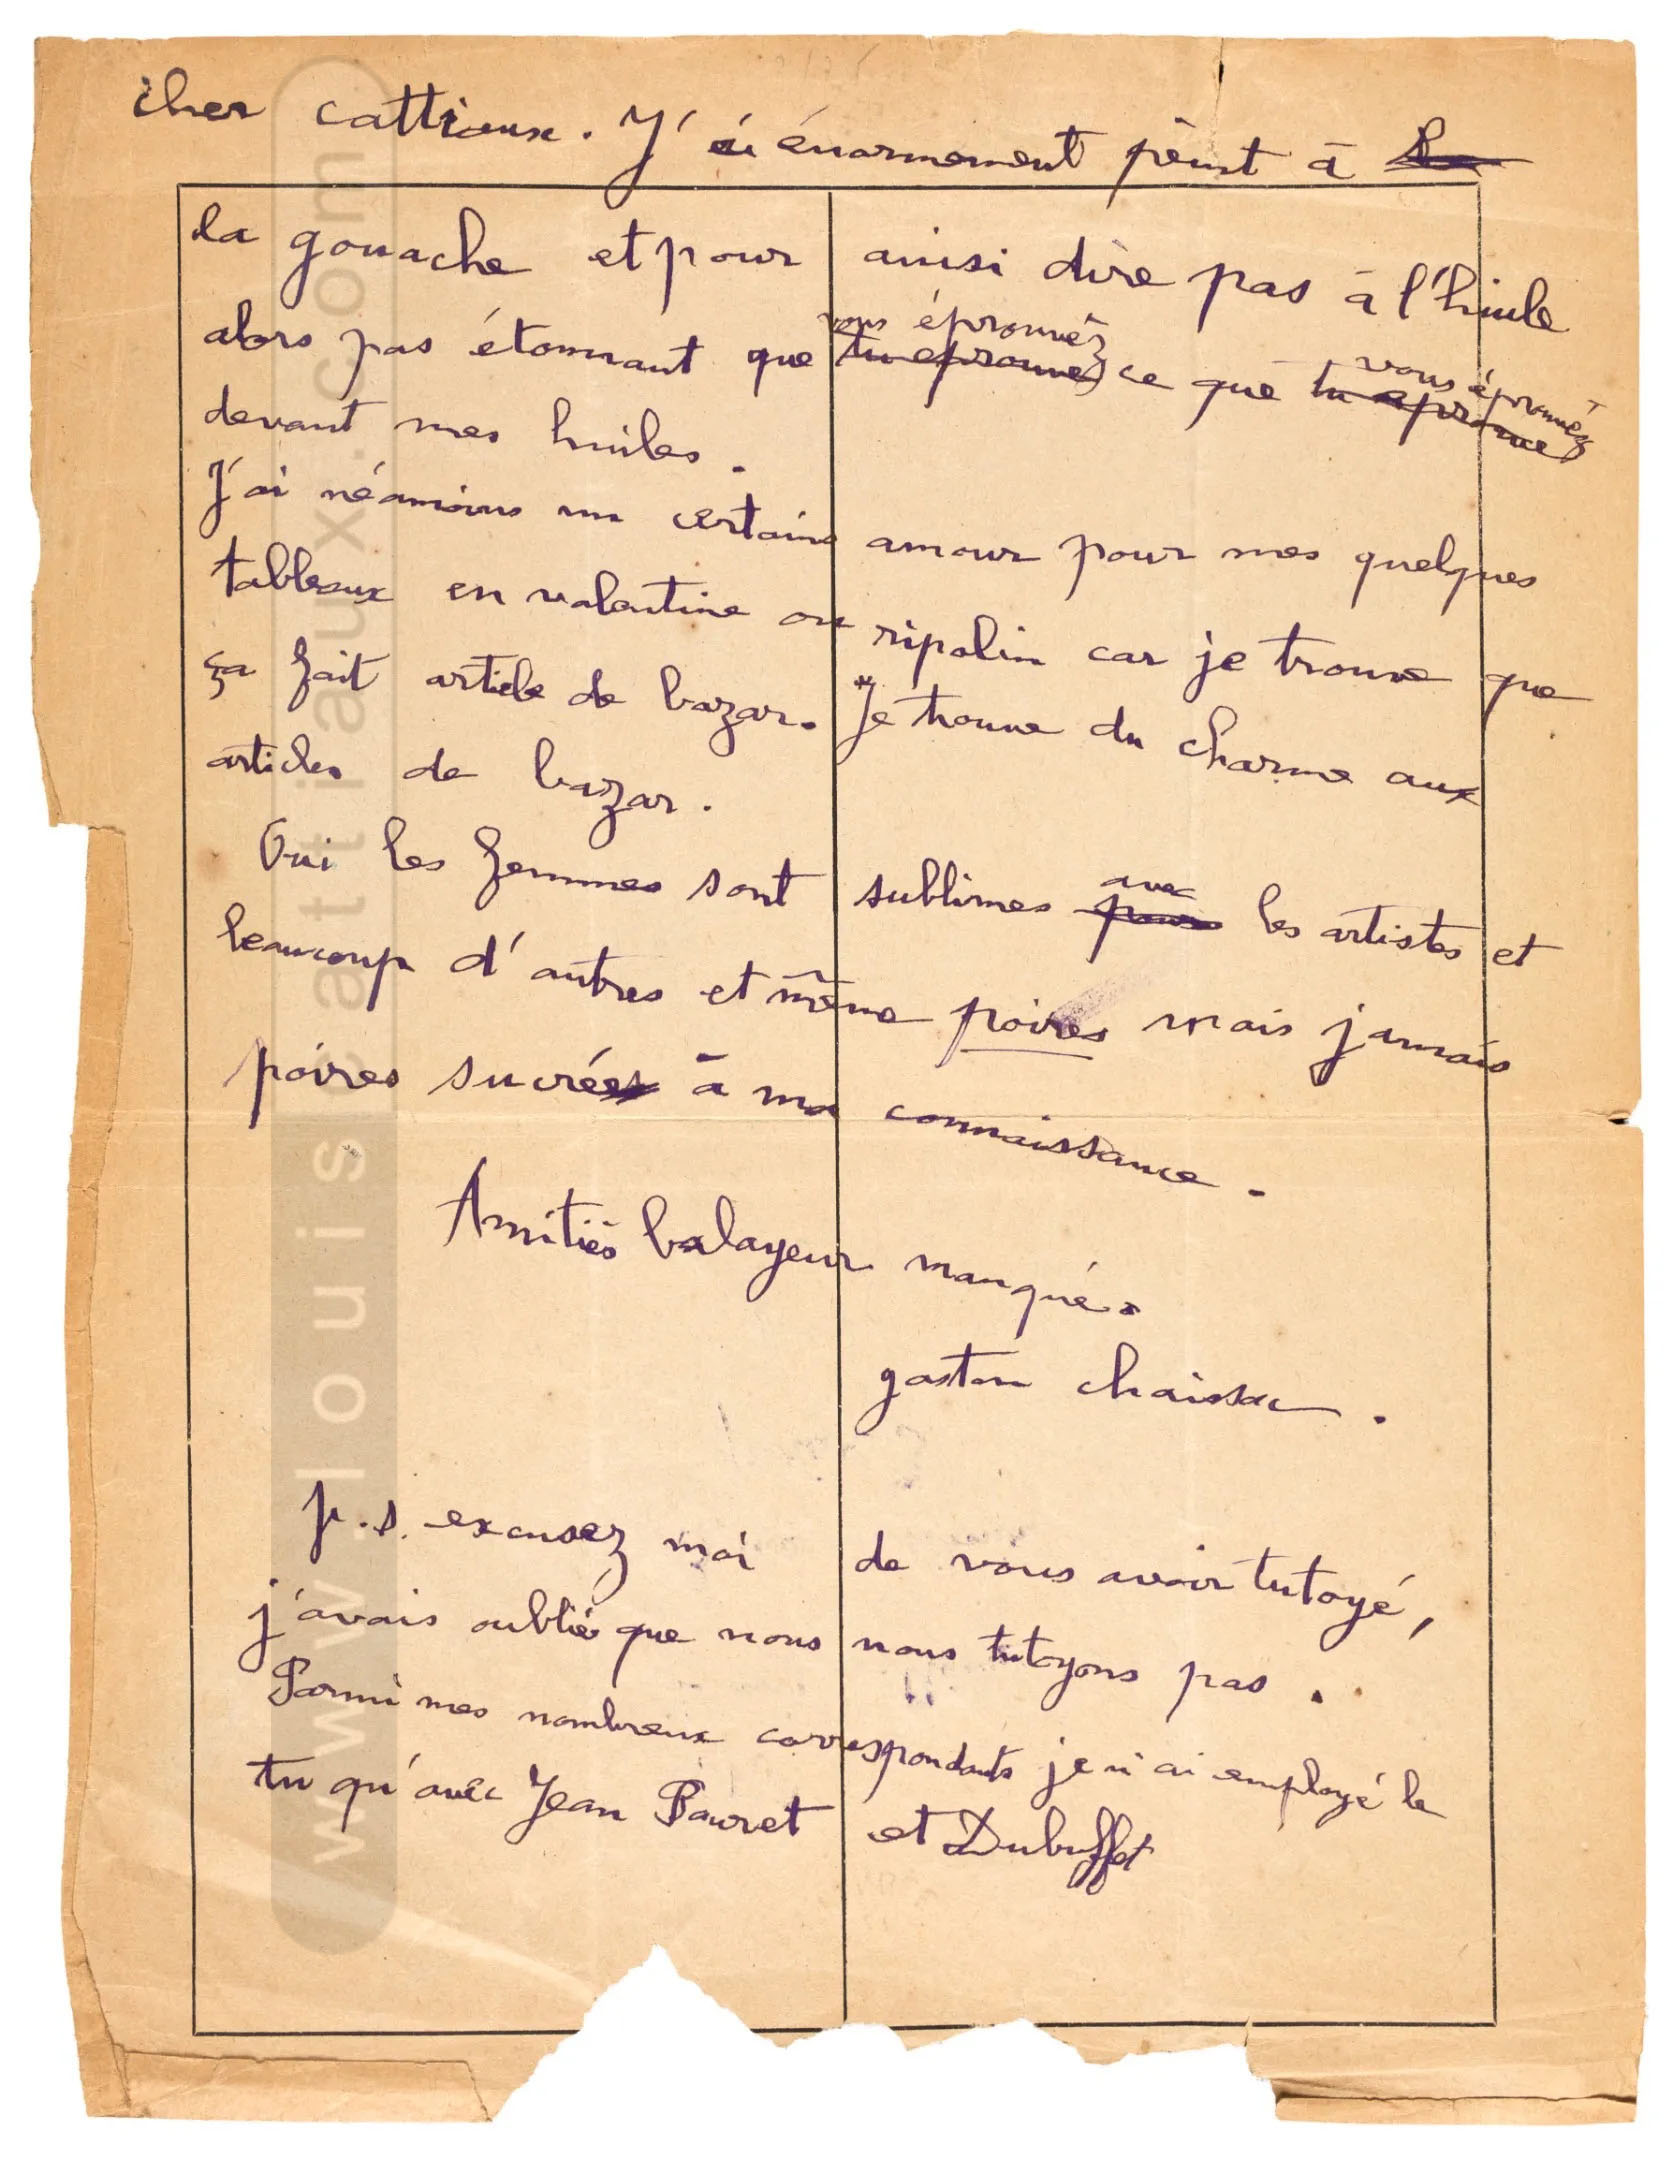 cher cattiaux. J'ai énormement peint à
la gouache et pour ainsi dire pas à l'huile
alors pas étonnant que vous éprouvéz ce que vous éprouvéz
devant mes huiles.
J'ai néamoins un certains amour pour mes quelques
tableaux en valentine ou ripolin car je trouve que
ça fait article de bazar. Je trouve du charme aux
articles de bazar.
Oui les femmes sont sublimes avec les artistes et
beaucoup d'autres et même poires mais jamais
poires sucrées à ma connaissance.
Amitiés balayeur manqué.
gaston chaissac.
p.s. excusez moi de vous avoir tutoyé,
j'avais oublié que nous nous tutoyons pas.
Parmi mes nombreux correspondants je n'ai employé le
tu qu'avec Jean Pauret et Dubuffet
www.louiscattiaux.com